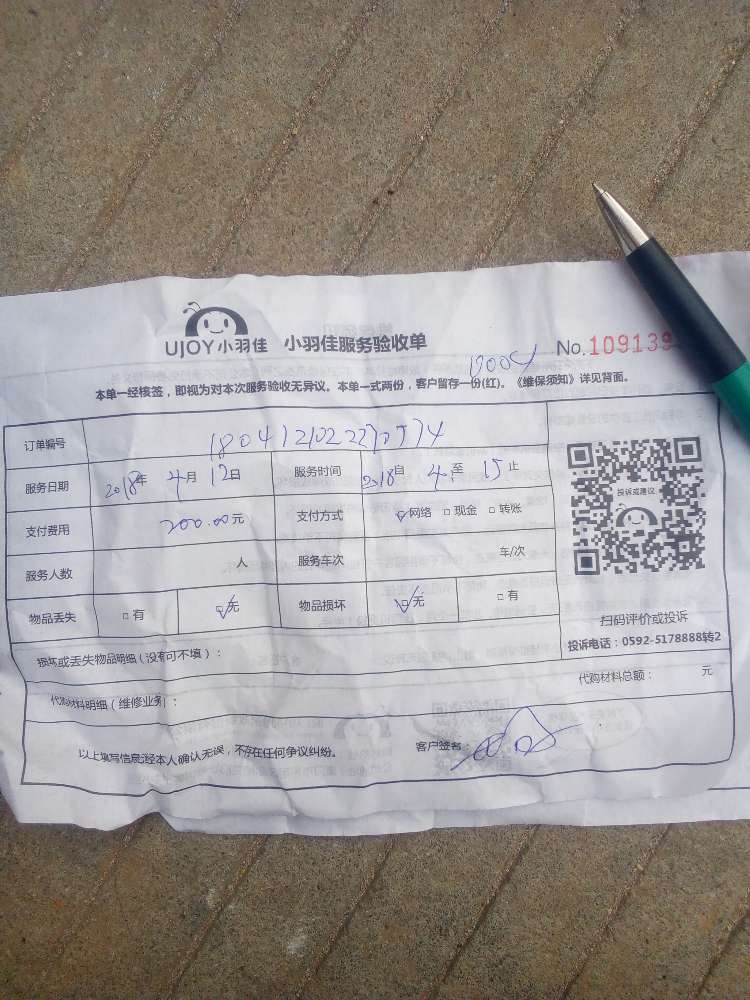 UJOY小羽佳 小羽佳服务验收单 No.109139
本单一经核签，即视为对本次服务验收无异议。本单一式两份，客户留存一份(红)。《维保须知》详见背面。
订单编号
服务日期 2018年 4月 12日 服务时间 2018自 4. 至 15 止
支付费用 200.00元 支付方式 ☑网络 □现金 □转账
服务人数 人 服务车次 车/次
物品丢失 □有 ☑无 物品损坏 ☑无 □有
投诉或建议
扫码评价或投诉
投诉电话：0592-5178888转2
损坏或丢失物品明细（没有可不填）：
代购材料明细（维修业务）： 代购材料总额： 元
以上填写信息经本人确认无误，不存在任何争议纠纷。 客户签名：